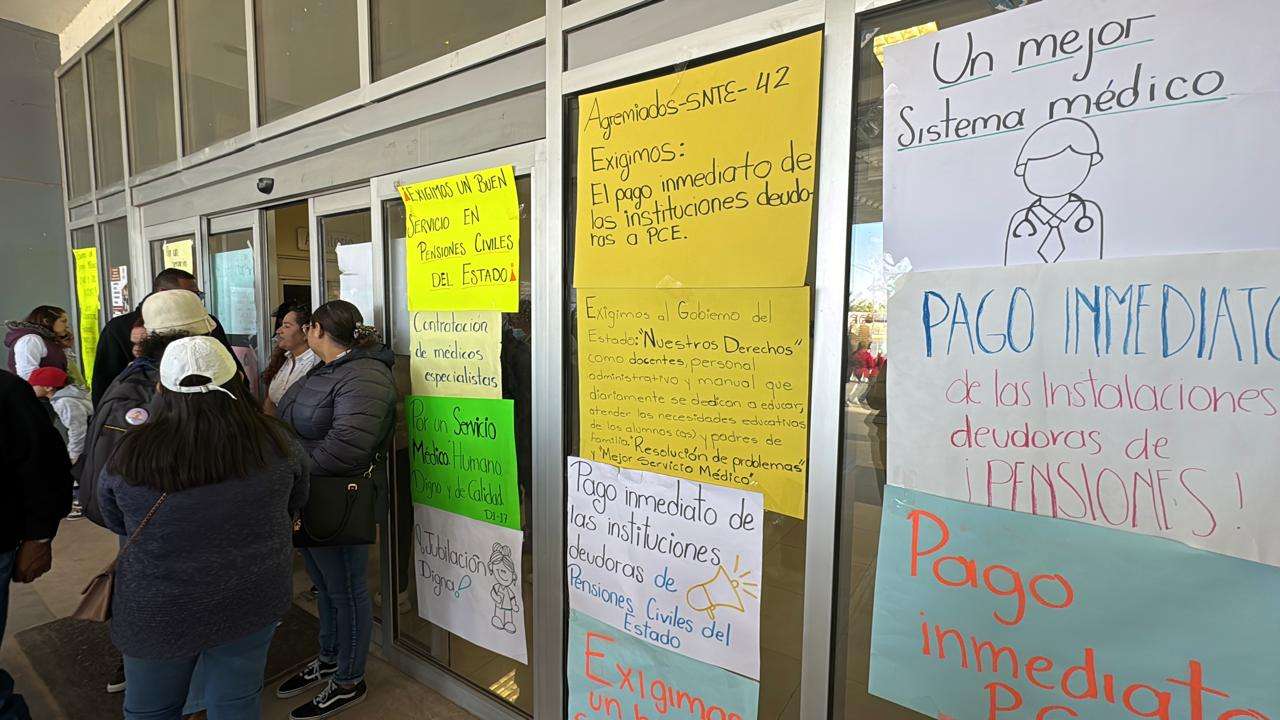 ¡EXIGIMOS UN BUEN
SERVICIO EN
PENSIONES CIVILES
DEL ESTADO!
Contratación
de médicos
especialistas
Por un Servicio
Médico Humano
Digno y de Calidad.
¡Jubilación
Digna!
Agremiados-SNTE-42
Exigimos:
El pago inmediato de
las instituciones deudo-
ras a PCE.
Exigimos al Gobierno del
Estado: "Nuestros Derechos"
como docentes, personal
administrativo y manual que
diariamente se dedican a educar,
atender las necesidades educativas
de los alumnos(as) y padres de
familia. "Resolución de problemas"
y "Mejor Servicio Médico".
Pago inmediato de
las instituciones
deudoras de
Pensiones Civiles del
Estado
Exigimos
un
Un mejor
Sistema médico
PAGO INMEDIATO
de las Instalaciones
deudoras de
¡PENSIONES!
Pago
inmediato